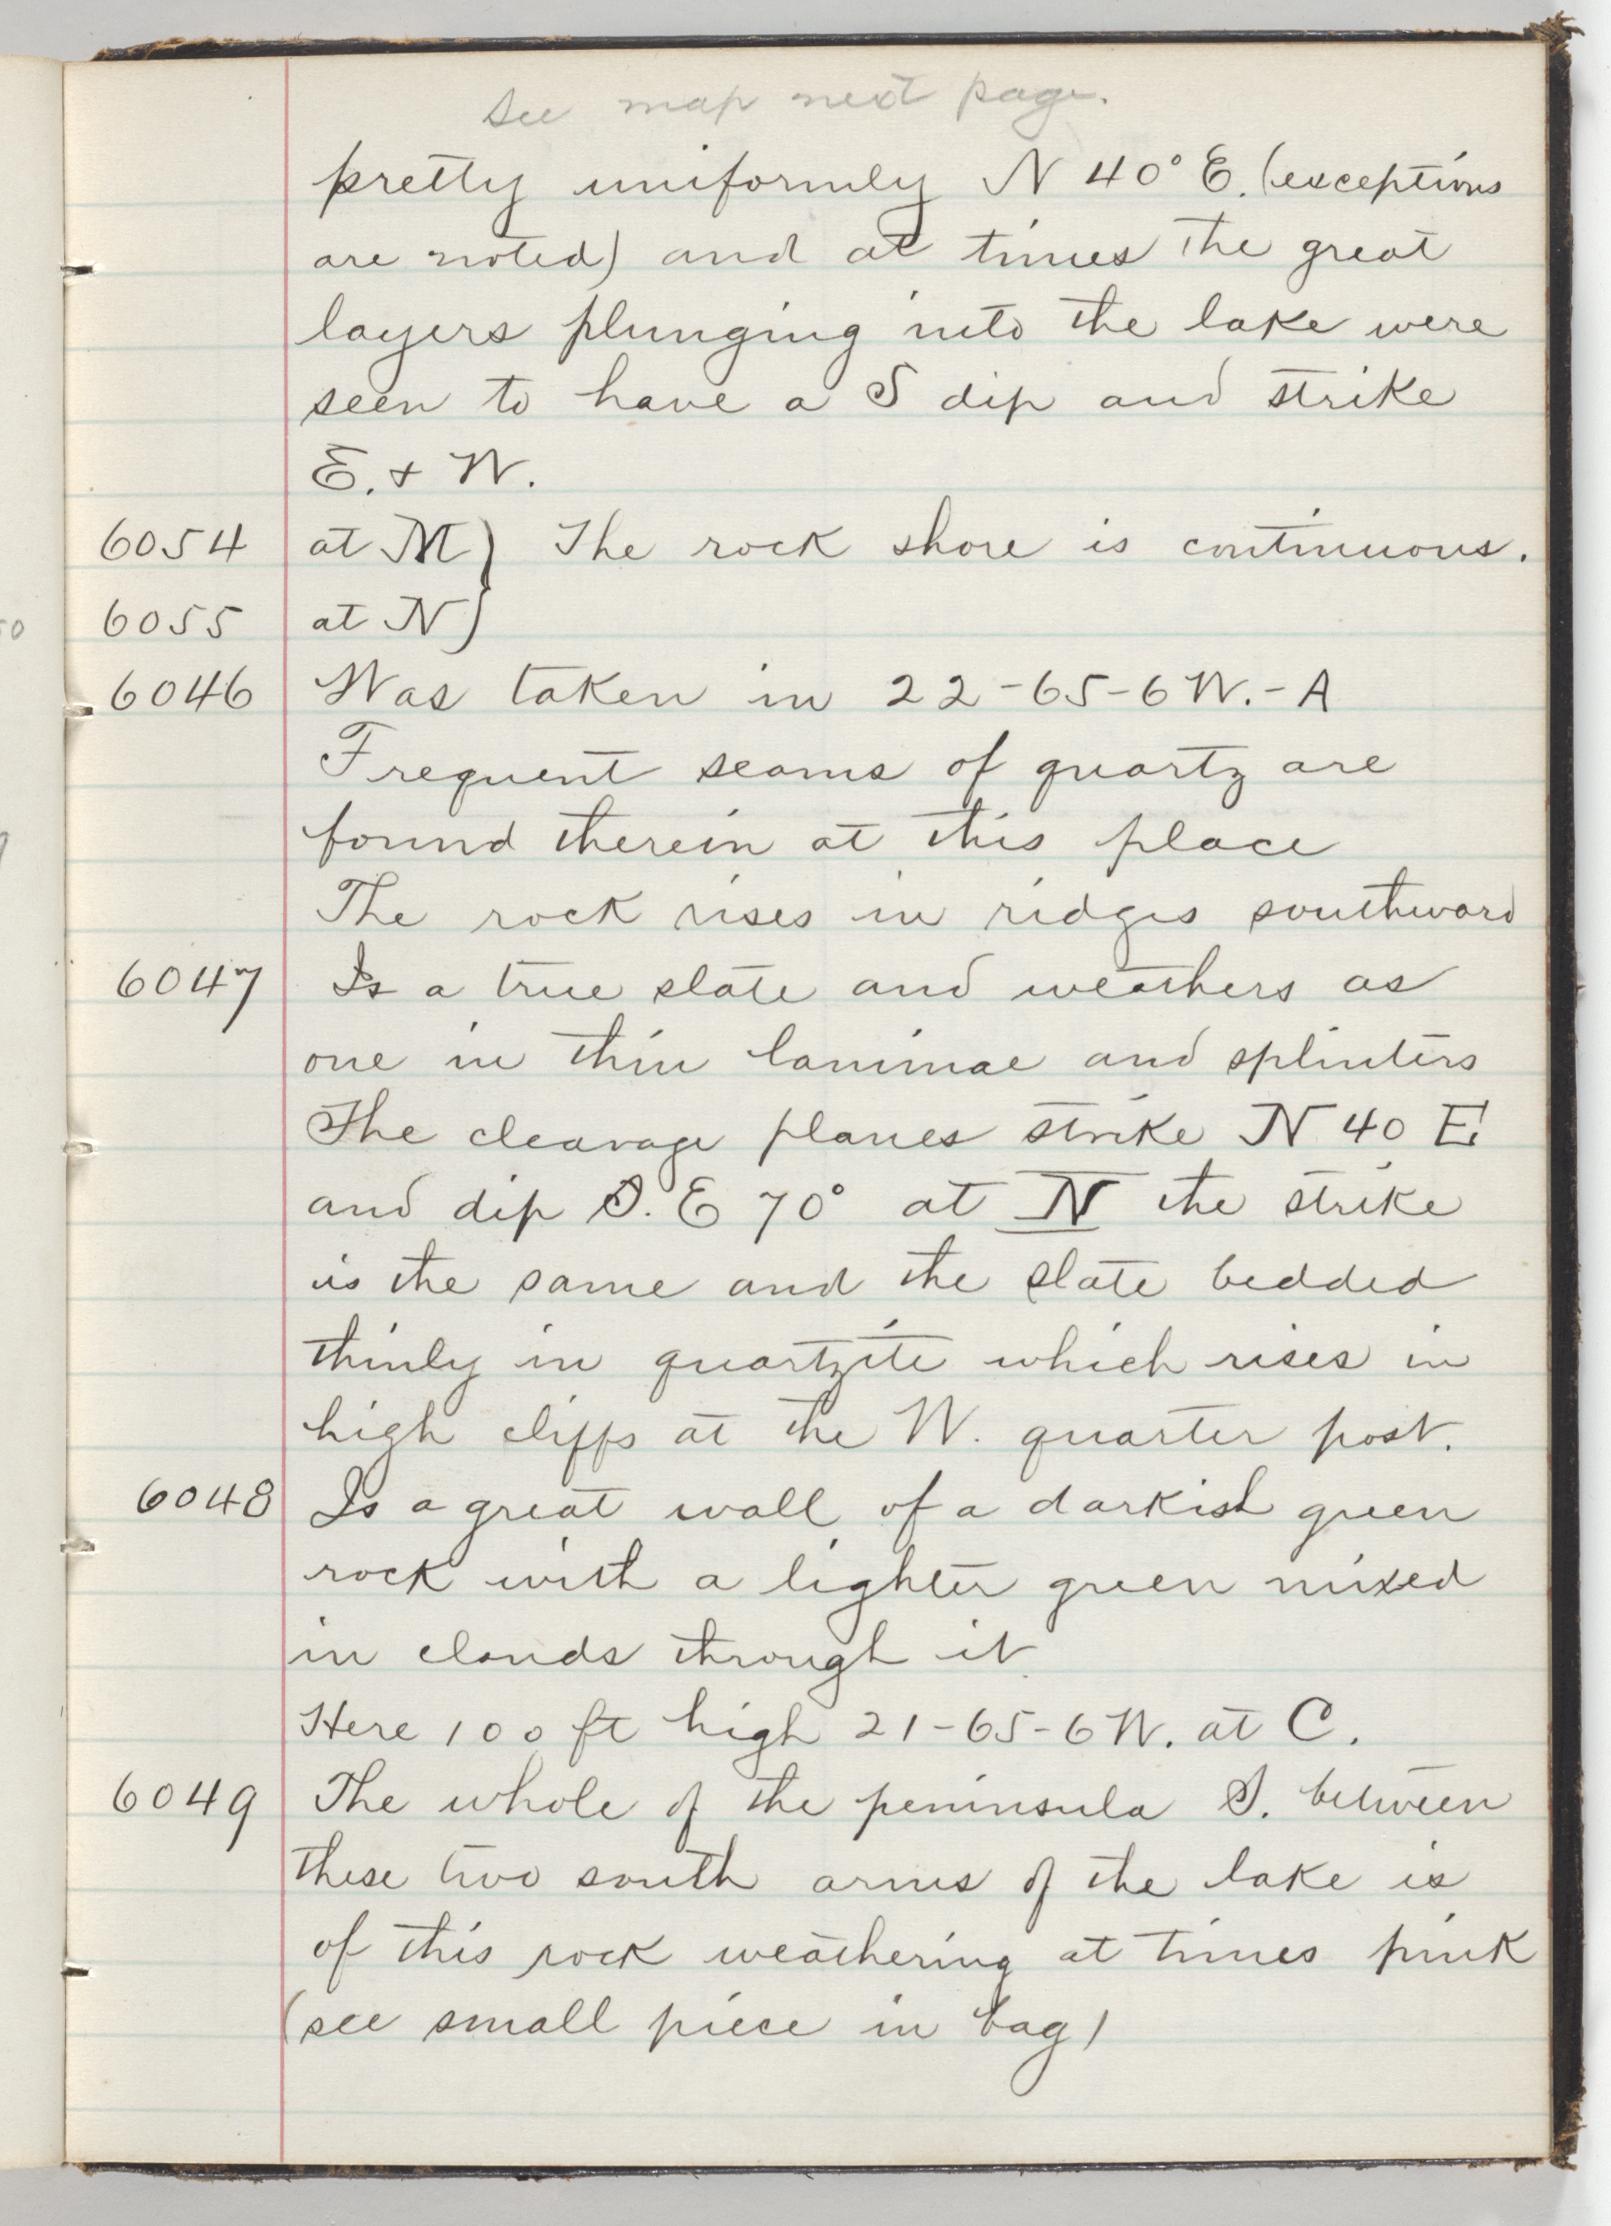 See map next page.
pretty uniformly N 40° E. (exceptions
are noted) and at times the great
layers plunging into the lake were
seen to have a S dip and strike
E. & W.
6054 at M) The rock shore is continuous.
6055 at N)
6046 Was taken in 22-65-6W.-A
Frequent seams of quartz are
found therein at this place
The rock rises in ridges southward
6047 Is a true slate and weathers as
one in thin laminae and splinters
The cleavage planes strike N 40 E.
and dip S.E 70° at N the strike
is the same and the slate bedded
thinly in quartzite which rises in
high cliffs at the W. quarter post.
6048 Is a great wall of a darkish green
rock with a lighter green mixed
in clouds through it
Here 100 ft high 21-65-6W. at C.
6049 The whole of the peninsula S. between
these two south arms of the lake is
of this rock weathering at times pink
(see small piece in bag)